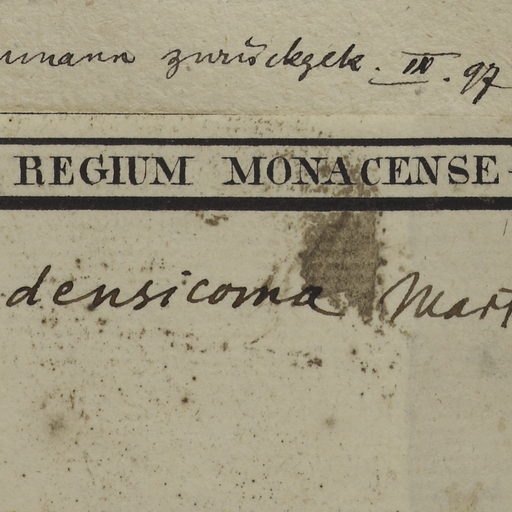 umann zurückgek. III. 97
REGIUM MONACENSE
densicoma Mart